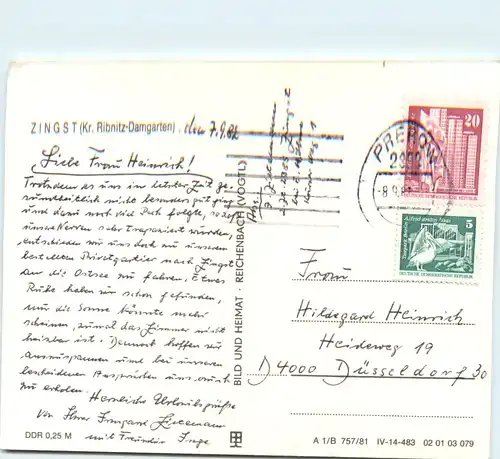 ZINGST (Kr. Ribnitz-Damgarten), den 7.9.82
Liebe Frau Heinrich!
Trotzdem es uns in letzter Zeit ge-
sundheitlich nicht besonders gut ging
und dann noch die Folgte, so daß
unsere Nerven sehr strapaziert wurden,
entschieden wir uns doch zu unserem
bestellten Privatquartier nach Zingst
an die Ostsee zu fahren. Etwas
Ruhe haben wir schon gefunden,
nur die Sonne könnte mehr
scheinen, zumal das Zimmer nicht
heizbar ist. Dennoch hoffen wir
auszuspannen und bei unseren
bescheidenen Ansprüchen uns
zu erholen.
Herzliche Urlaubsgrüße
von Ihrer Irmgard
mit Freundin Inge
DDR 0,25 M
BILD UND HEIMAT · REICHENBACH (VOGTL)
Abs.
PREROW
8.9.
20
DEUTSCHE DEMOKRATISCHE REPUBLIK
5
DEUTSCHE DEMOKRATISCHE REPUBLIK
Frau
Hildegard Heinrich
Heideweg 19
D4000 Düsseldorf 30
A 1/B 757/81 IV-14-483 02 01 03 079